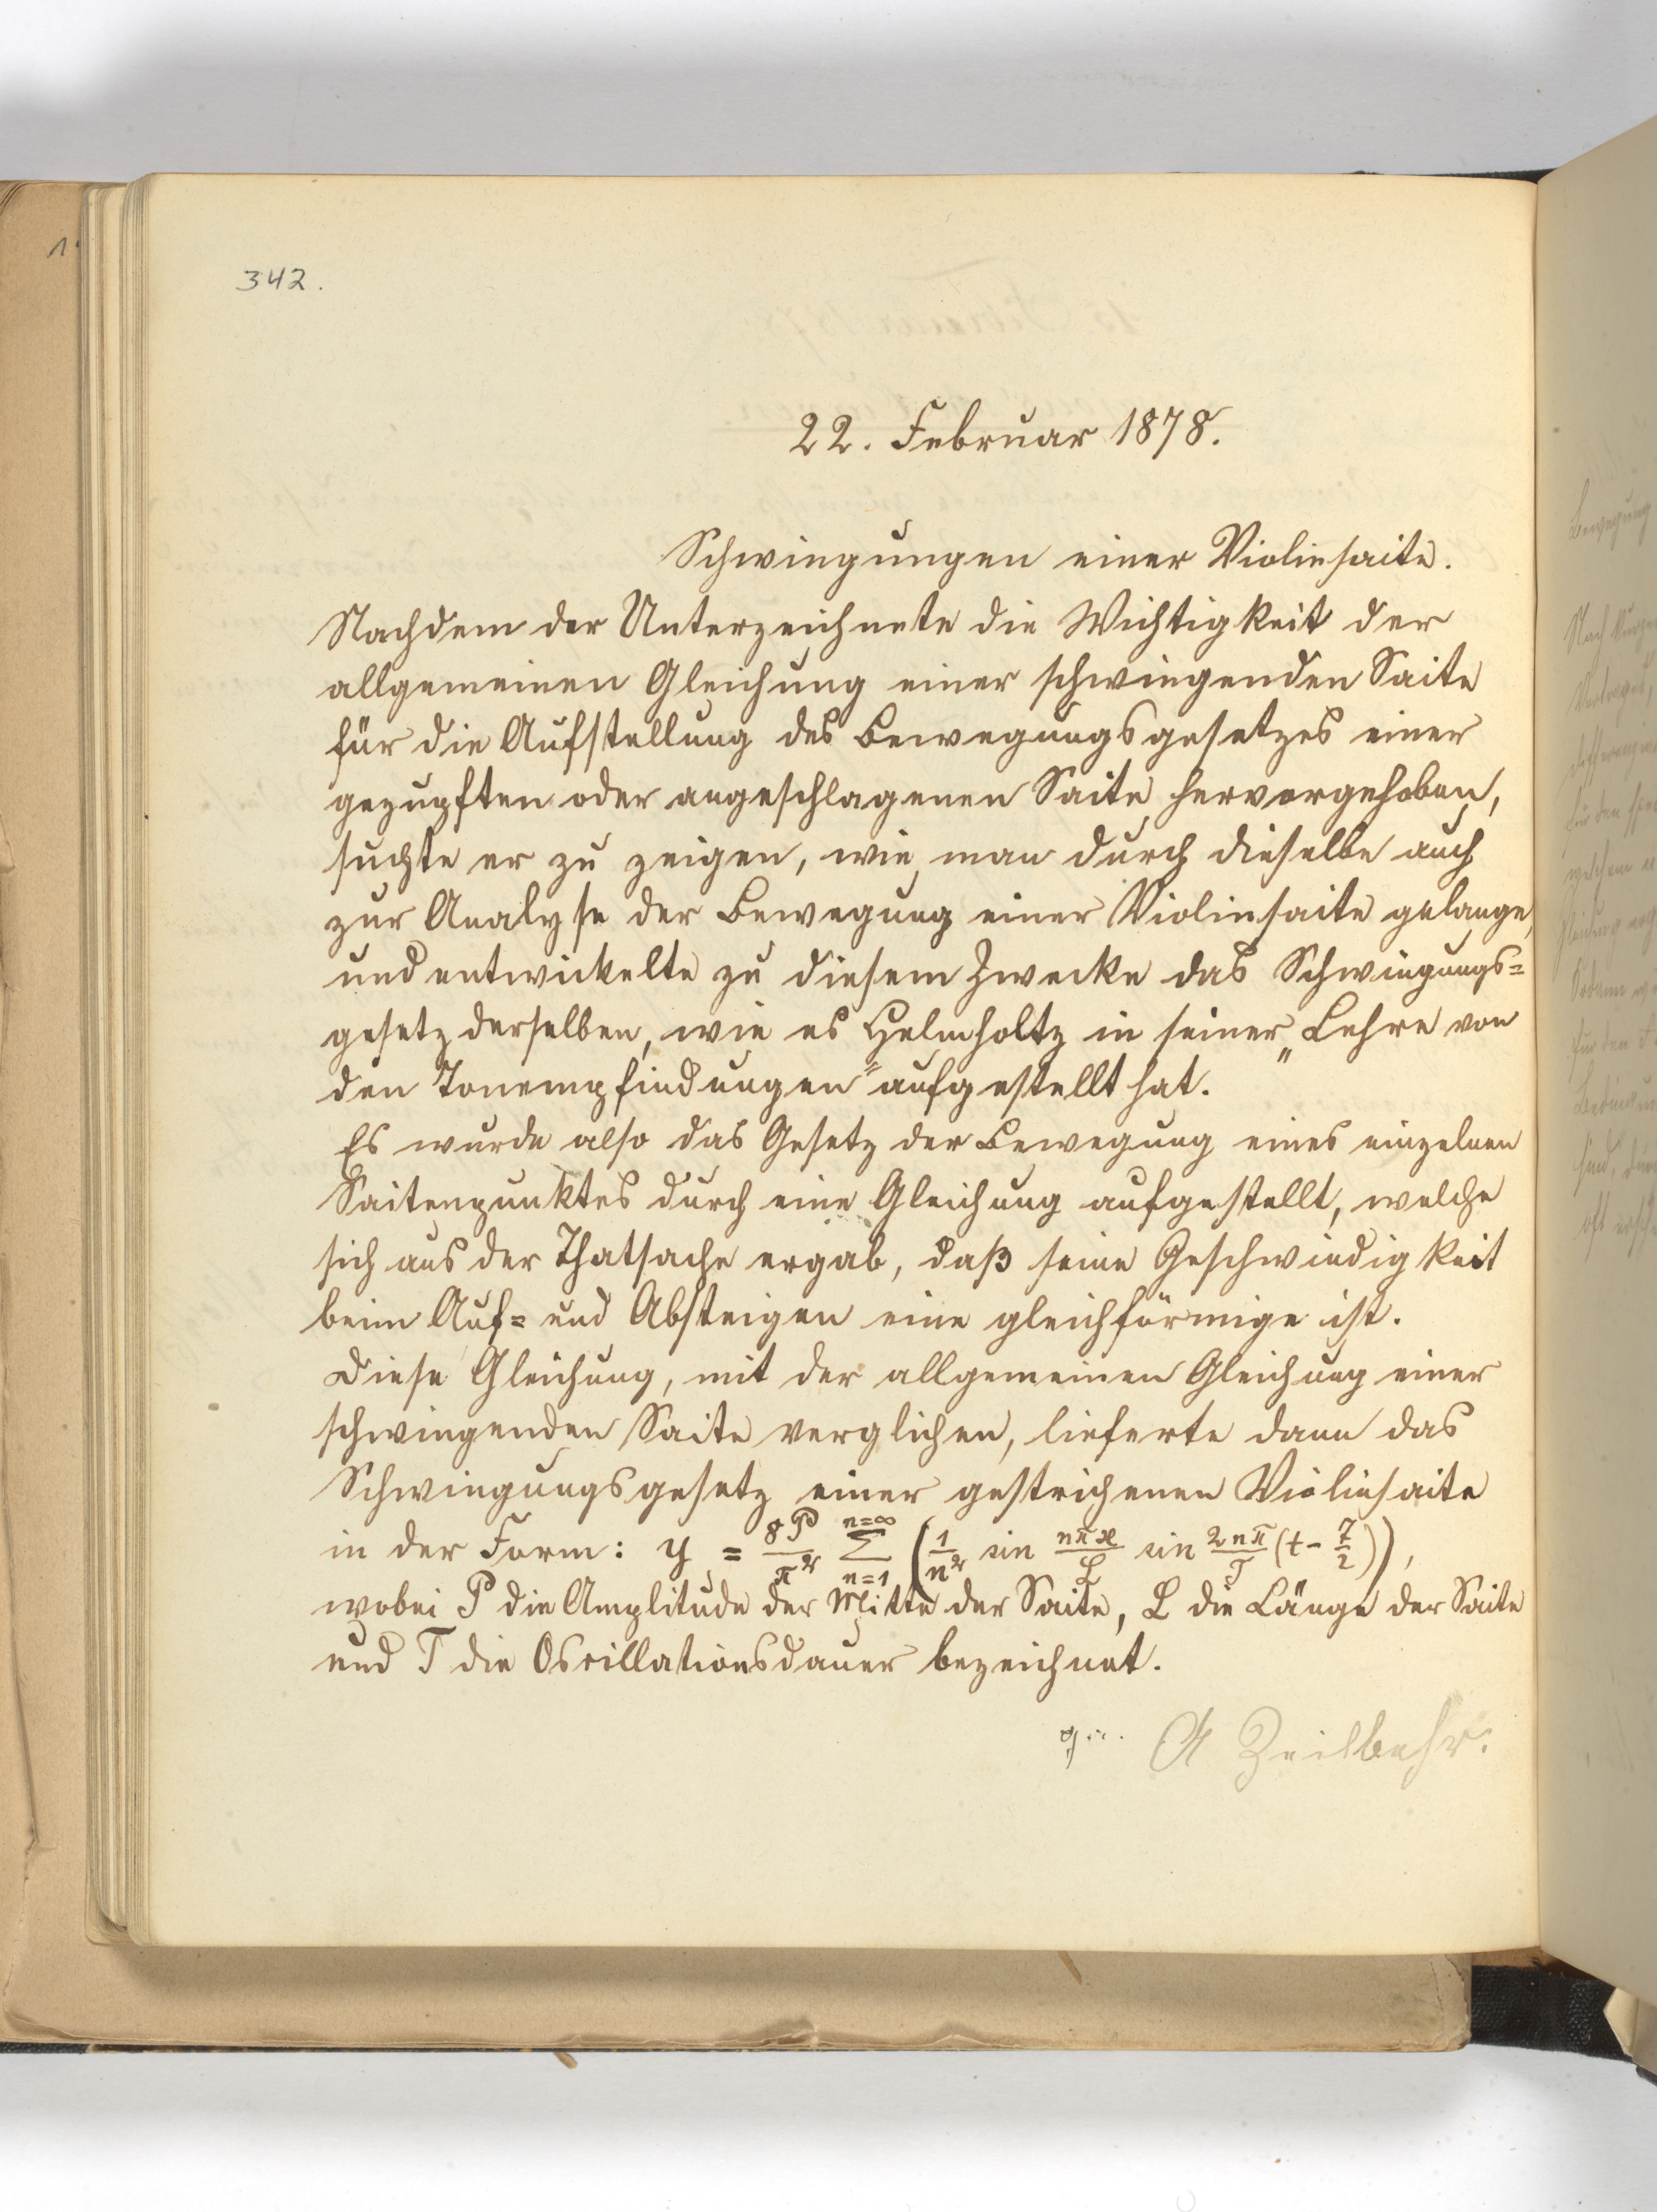 342.
22. Februar 1878.
Schwingungen einer Violinsaite.
Nachdem der Unterzeichnete die Wichtigkeit der
allgemeinen Gleichung einer schwingenden Saite
für die Aufstellung des Bewegungsgesetzes einer
gezupften oder angeschlagenen Saite hervorgehoben,
suchte er zu zeigen, wie man durch dieselbe auch
zur Analyse der Bewegung einer Violinsaite gelange,
und entwickelte zu diesem Zwecke das Schwingungs=
gesetz derselben, wie es Helmholtz in seiner „Lehre von
den Tonempfindungen" aufgestellt hat.
Es wurde also das Gesetz der Bewegung eines einzelnen
Saitenpunktes durch eine Gleichung aufgestellt, welche
sich aus der Thatsache ergab, daß seine Geschwindigkeit
beim Auf= und Absteigen eine gleichförmige ist.
Diese Gleichung, mit der allgemeinen Gleichung einer
schwingenden Saite verglichen, lieferte dann das
Schwingungsgesetz einer gestrichenen Violinsaite
in der Form: y = 8P/π² Σ n=1 n=∞ (1/n² sin nπx/L sin 2nπ/T (t - T/2)),
wobei P die Amplitude der Mitte der Saite, L die Länge der Saite
und T die Oscillationsdauer bezeichnet.